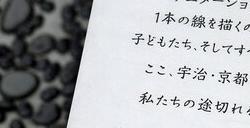 ーション
1本の線を描くの
子どもたち、そしてすべ
ここ、宇治・京都
私たちの途切れ